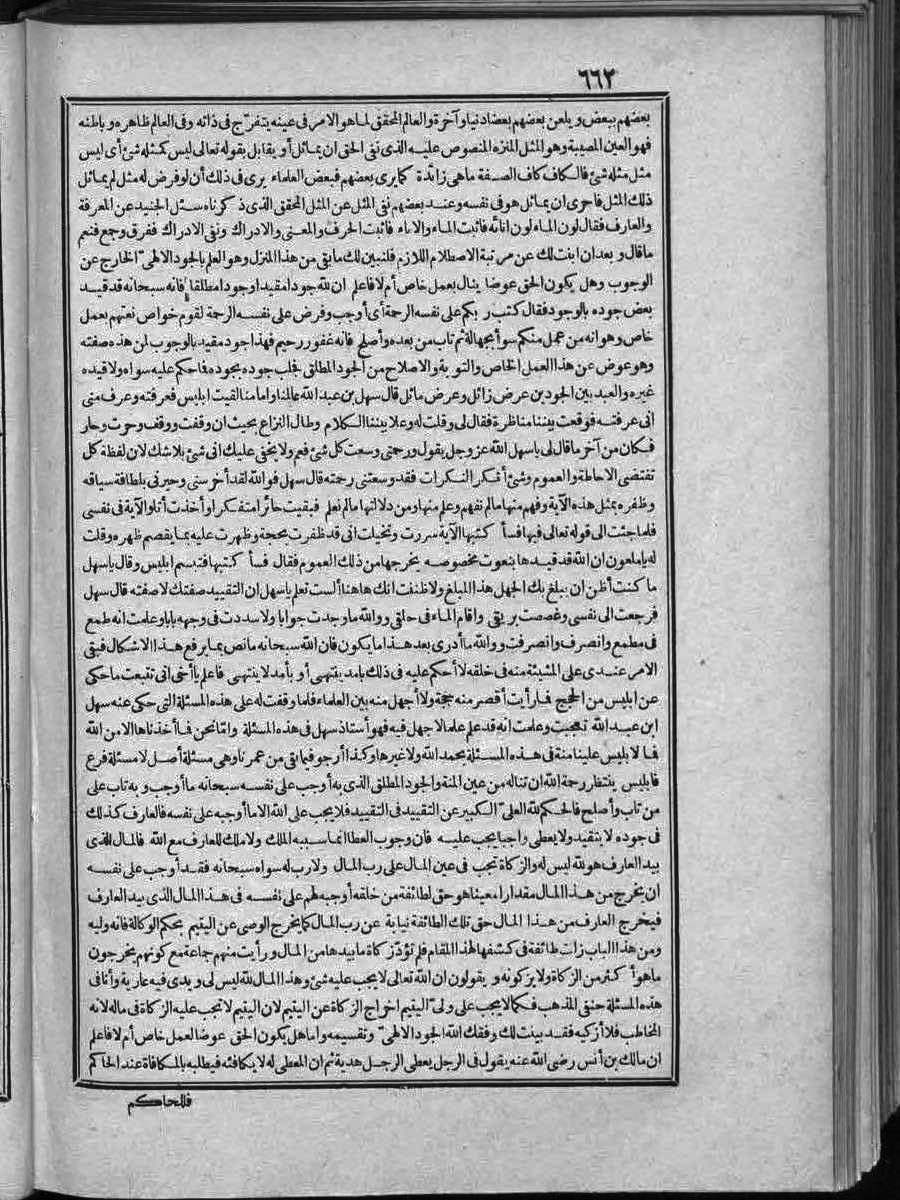 ٦٦٢
بعضهم ببعض ويلعن بعضهم بعضا دنيا وآخرة والعالم المحقق لما هو الامر فى عينه يتفرّج فى ذاته وفى العالم ظاهره وباطنه
فهو العين المصيبة وهو المثل المنزه المنصوص عليه الذى نفى الحق ان يماثل أو يقابل بقوله تعالى ليس كمثله شئ أى ليس
مثل مثله شئ فالكاف كاف الصفة ماهى زائدة كما يرى بعضهم فبعض العلماء يرى فى ذلك أن لو فرض له مثل لم يماثل
ذلك المثل فاحرى ان يماثل هو فى نفسه وعند بعضهم نفى المثل عن المثل المحقق الذى ذكرناه سئل الجنيد عن المعرفة
والعارف فقال لون الماء لون انائه فاثبت الماء والاناء فاثبت الحرف والمعنى والادراك ونفى الادراك ففرق وجمع فنعم
ما قال وبعد ان ابنت لك عن مرتبة الاصطلام اللازم فلنبين لك ما بقى من هذا المنزل وهو العلم بالجود الالهىّ الخارج عن
الوجوب وهل يكون الحق عوضا ينال بعمل خاص أم لا فاعلم ان لله جودا مقيدا وجودا مطلقا فانه سبحانه قد قيد
بعض جوده بالوجود فقال كتب ربكم على نفسه الرحمة أى أوجب وفرض على نفسه الرحمة لقوم خواص نعتهم بعمل
خاص وهو انه من عمل منكم سوأ بجهالة ثم تاب من بعده وأصلح فانه غفور رحيم فهذا جود مقيد بالوجوب لمن هذه صفته
وهو عوض عن هذا العمل الخاص والتوبة والاصلاح من الجود المطلق فجلب جوده بجوده فما حكم عليه سواه ولا قيده
غيره والعبد بين الجودين عرض زائل وعرض ماثل قال سهل بن عبد الله عالمنا وامامنا لقيت ابليس فعرفته وعرف منى
انى عرفته فوقعت بيننا مناظرة فقال لى وقلت له وعلا بيننا الكلام وطال النزاع بحيث ان وقفت ووقف وحرت وحار
فكان من آخر ما قال لى يا سهل الله عز وجل يقول ورحمتى وسعت كل شئ فعم ولا يخفى عليك انى شئ بلا شك لان لفظة كل
تقتضى الاحاطة والعموم وشئ أنكر النكرات فقد وسعتنى رحمته قال سهل فوالله لقد أخرسنى وحيرنى بلطافة سياقه
وظفره بمثل هذه الآية وفهم منها ما لم نفهم وعلم منها ومن دلالتها ما لم نعلم فبقيت حائرا متفكرا وأخذت أتلو الآية فى نفسى
فلما جئت الى قوله تعالى فيها فسأ كتبها الآية سررت وتخيلت انى قد ظفرت بحجة وظهرت عليه بما يقصم ظهره وقلت
له يا ملعون ان الله قد قيدها بنعوت مخصوصه يخرجها من ذلك العموم فقال فسأ كتبها فتبسم ابليس وقال يا سهل
ما كنت أظن ان يبلغ بك الجهل هذا المبلغ ولا ظننت انك هاهنا ألست تعلم يا سهل ان التقييد صفتك لا صفته قال سهل
فرجعت الى نفسى وغصصت بريقى واقام الماء فى حلقى ووالله ما وجدت جوابا ولا سددت فى وجهه بابا وعلمت انه طمع
فى مطمع وانصرف وانصرفت ووالله ما أدرى بعد هذا ما يكون فان الله سبحانه ما نص بما يرفع هذا الاشكال فبقى
الامر عندى على المشيئة منه فى خلقه لا أحكم عليه فى ذلك بامد ينتهى أو بأمد لا ينتهى فاعلم يا أخى انى تتبعت ما حكى
عن ابليس من الحجج فما رأيت أقصر منه حجة ولا أجهل منه بين العلماء فلما وقفت له على هذه المسئلة التى حكى عنه سهل
ابن عبد الله تعجبت وعلمت انه قد علم علما لا جهل فيه فهو أستاذ سهل فى هذه المسئلة وامّا نحن فما أخذناها الا من الله
فما لابليس علينا منة فى هذه المسئلة بحمد الله ولا غيرها وكذا أرجو فيما بقى من عمرنا وهى مسئلة أصل لا مسئلة فرع
فابليس ينتظر رحمة الله ان تناله من عين المنة والجود المطلق الذى به أوجب على نفسه سبحانه ما أوجب وبه تاب على
من تاب وأصلح فالحكم لله العلىّ الكبير عن التقييد فى التقييد فلا يجب على الله الا ما أوجبه على نفسه فالعارف كذلك
فى جوده لا يتقيد ولا يعطى واجبا يجب عليه فان وجوب العطا انما سببه الملك ولا ملك للعارف مع الله فالمال الذى
بيد العارف هو لله ليس له والزكاة تجب فى عين المال على رب المال ولا رب له سواه سبحانه فقد أوجب على نفسه
ان يخرج من هذا المال مقدارا معينا هو حق لطائفة من خلقه أوجبه لهم على نفسه فى هذا المال الذى بيد العارف
فيخرج العارف من هذا المال حق تلك الطائفة نيابة عن رب المال كما يخرج الوصى عن اليتيم بحكم الوكالة فانه وليه
ومن هذا الباب زلت طائفة فى كشفها لهذا المقام فلم تؤدّ زكاة ما بيدها من المال ورأيت منهم جماعة مع كونهم يخرجون
ما هو أكثر من الزكاة ولا يزكونه ويقولون ان الله تعالى لا يجب عليه شئ وهذا المال لله ليس لى ويدى فيه عارية وأنا فى
هذه المسئلة حنفى المذهب فكما لا يجب على ولىّ اليتيم اخراج الزكاة عن اليتيم لان اليتيم لا تجب عليه الزكاة فى ماله لانه
المخاطب فلا أزكيه فقد بينت لك وفقك الله الجود الالهىّ وتقسيمه واما هل يكون الحق عوضا لعمل خاص أم لا فاعلم
ان مالك بن أنس رضى الله عنه يقول فى الرجل يعطى الرجل هدية ثم ان المعطى له لا يكافئه فيطلبه بالمكافاة عند الحاكم
فللحاكم